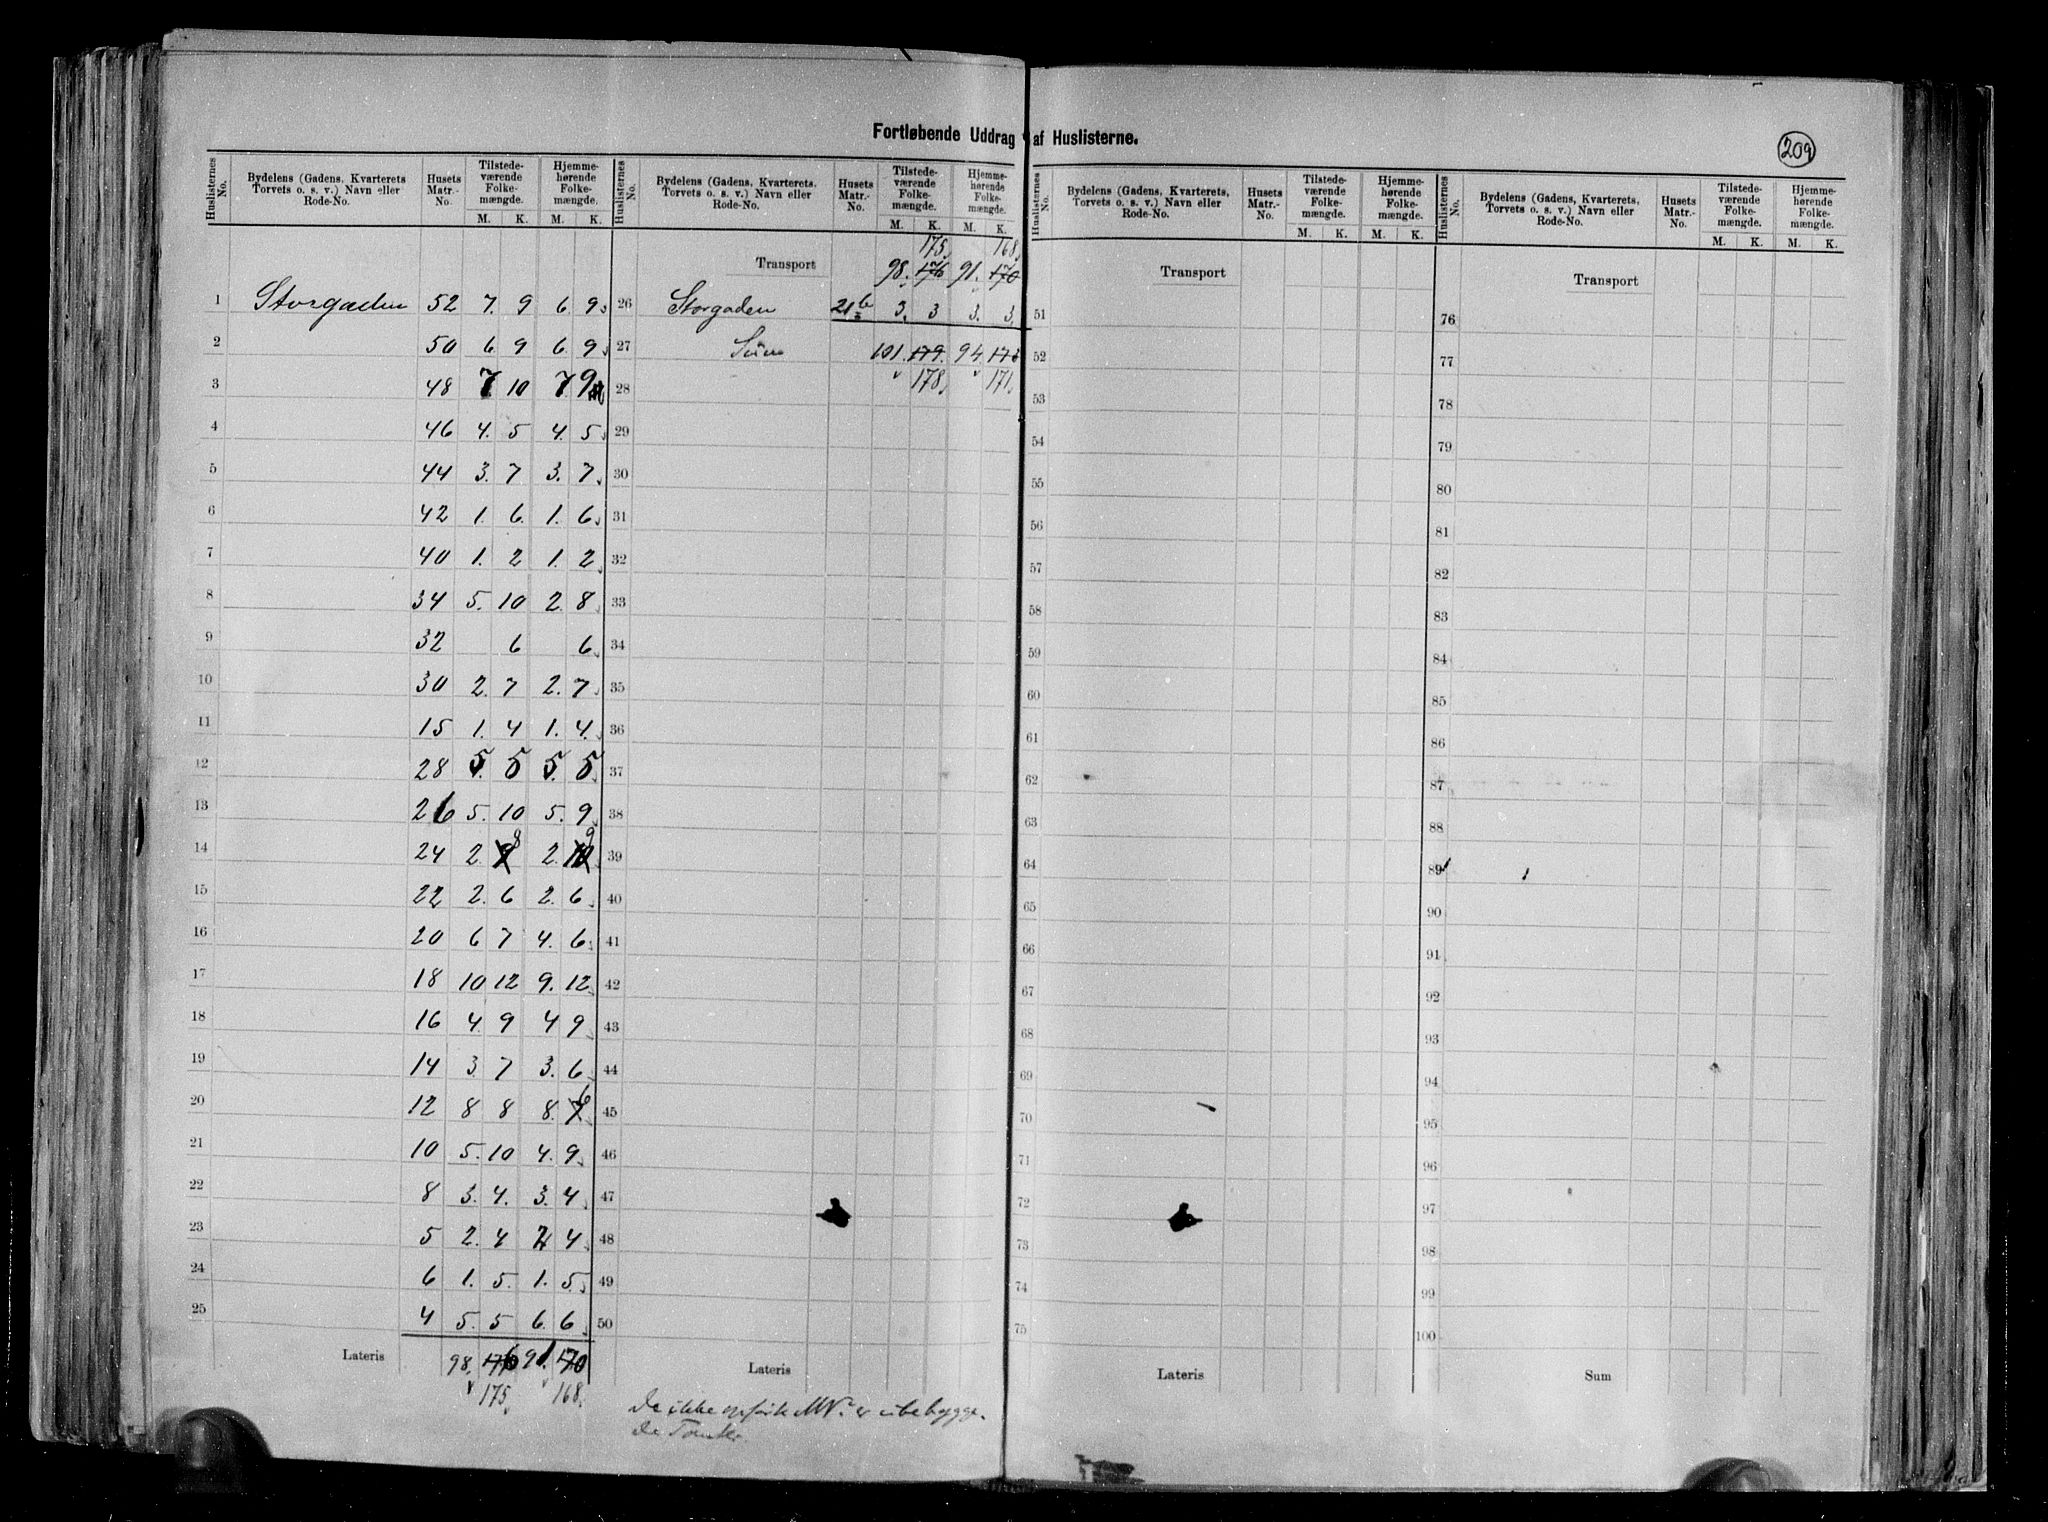 Fortløbende Uddrag af Huslisterne.
209
Huslisternes No. | Bydelens (Gadens, Kvarterets, Torvets o. s. v.) Navn eller Rode-No. | Husets Matr.-No. | Tilstedeværende Folkemængde. M. K. | Hjemmehørende Folkemængde. M. K.
1 Storgaden 52 7. 9 6. 9
2 50 6 9 6. 9
3 48 7 10 7 9
4 46 4. 5 4. 5
5 44 3. 7 3. 7
6 42 1. 6. 1. 6
7 40 1. 2 1. 2
8 34 5. 10 2. 8
9 32 6 6
10 30 2. 7 2. 7
11 15 1. 4 1. 4.
12 28 5. 5 5. 5
13 26 5. 10 5. 9
14 24 2. 8 2. 9
15 22 2. 6 2. 6
16 20 6 7 4. 6
17 18 10 12 9. 12
18 16 4. 9 4 9
19 14 3. 7 3. 6
20 12 8 8 8. 6
21 10 5. 10 4. 9
22 8 3. 4. 3. 4
23 5 2. 4 2 4
24 6 1. 5. 1. 5
25 4 5. 5 6. 6
Lateris 98. 176 91. 170
175. 168.
Huslisternes No. | Bydelens (Gadens, Kvarterets, Torvets o. s. v.) Navn eller Rode-No. | Husets Matr.-No. | Tilstedeværende Folkemængde. M. K. | Hjemmehørende Folkemængde. M. K.
175. 168.
Transport 98. 176 91. 170
26 Storgaden 21b 3. 3 3. 3.
27 101. 179. 94. 173
28 178. 171.
29
30
31
32
33
34
35
36
37
38
39
40
41
42
43
44
45
46
47
48
49
50
Lateris
De ikke opførte MNo er ubebyggede Tomter.
Huslisternes No. | Bydelens (Gadens, Kvarterets, Torvets o. s. v.) Navn eller Rode-No. | Husets Matr.-No. | Tilstedeværende Folkemængde. M. K. | Hjemmehørende Folkemængde. M. K.
Transport
51
52
53
54
55
56
57
58
59
60
61
62
63
64
65
66
67
68
69
70
71
72
73
74
75
Lateris
Huslisternes No. | Bydelens (Gadens, Kvarterets, Torvets o. s. v.) Navn eller Rode-No. | Husets Matr.-No. | Tilstedeværende Folkemængde. M. K. | Hjemmehørende Folkemængde. M. K.
Transport
76
77
78
79
80
81
82
83
84
85
86
87
88
89
90
91
92
93
94
95
96
97
98
99
100
Sum